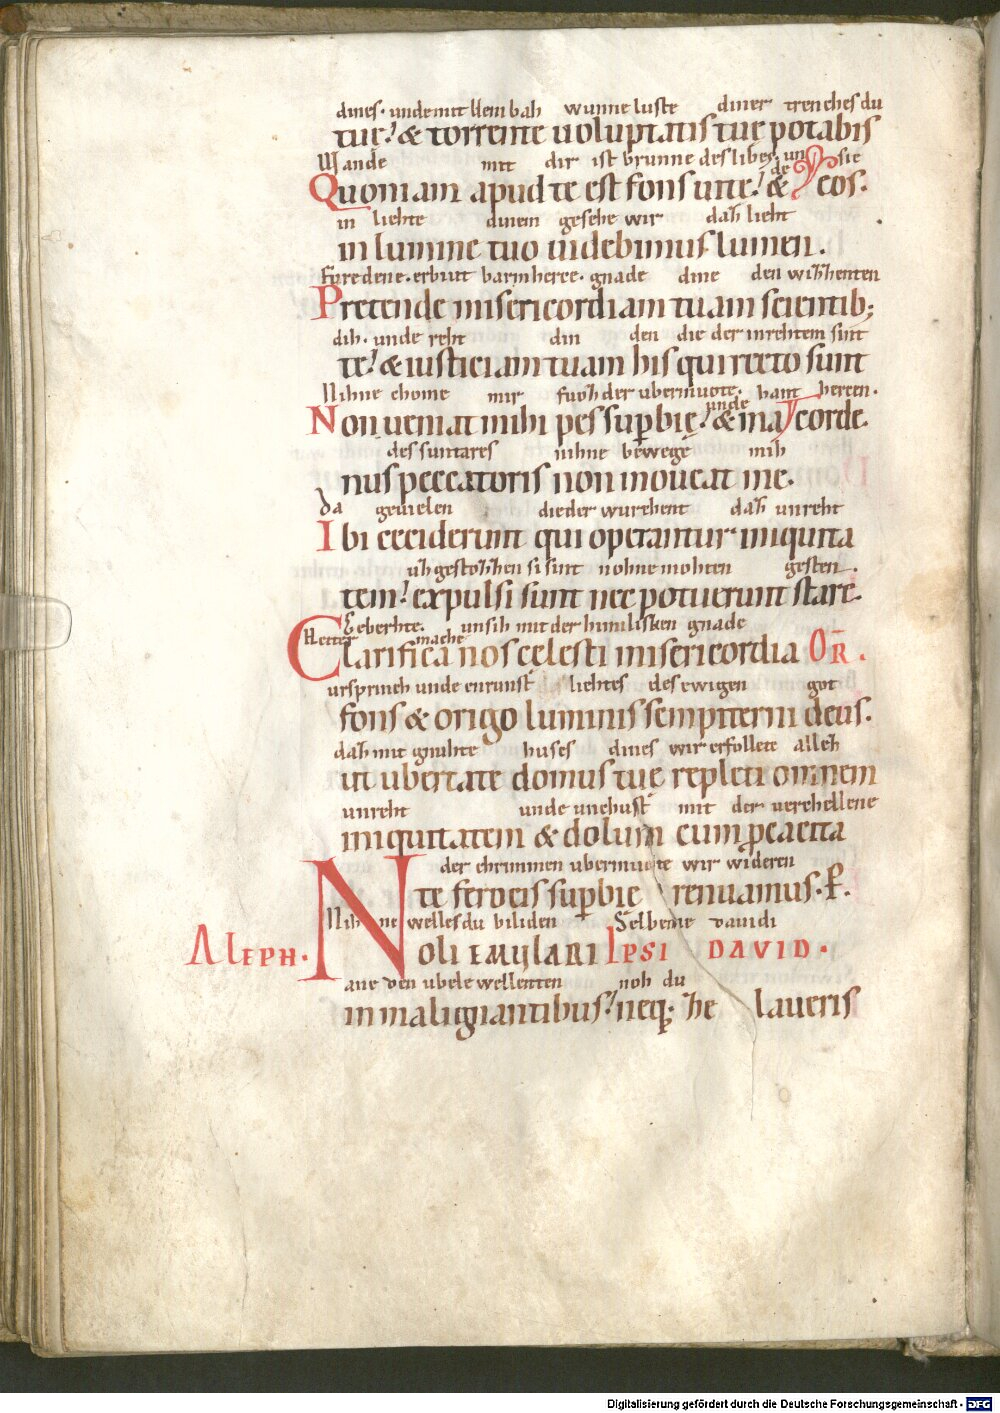 dines. unde mit klem bah wunne luste diner trenches du
tuę. & torrente uoluptatis tuę potabis
Wande mit dir ist brunne des libes. unde sie
Quoniam apud te est fons uitę. & cos.
in liehte dinem gesehe wir daz lieht
in lumine tuo uidebimus lumen.
Furedene. erbiut barmherce. gnade dine den wizzenten
Pretende misericordiam tuam scientib;
dih. unde reht din den die der inrehtem sint
te. & iusticiam tuam his qui recto sunt
Nihne chome mir fuoz der ubermuote. hant hercen.
Non ueniat mihi pes supbię. & ma corde.
unde
des suntares nihne bewege mih
nus peccatoris non moueat me.
Da geuielen die der wurchent daz unreht
Ibi ceciderunt qui operantur iniquita
uz gestozzen si sint noh ne mohten gesten.
tem. expulsi sunt nec potuerunt stare.
unsih mit der himilisken gnade
mache
Clarifica nos celesti misericordia OR.
ursprinch unde enrunst liehtes des ewigen got
fons & origo luminis sempiterni deus.
daz mit gnuhte huses dines wir erfollete allez
ut ubertate domus tuę repleti omnem
unreht unde unchust mit der verchellene
iniquitatem & dolum cum pcacita
der chrimmen ubermuote wir wideren
te ferocis supbie renuamus. P.
Nih ne welles du biliden Selbeme dauidi
ALEPH. Noli EMULARI IPSI DAVID.
ane den ubele wellenten noh du
in maligiantibus. neq. ze laueris
Digitalisierung gefördert durch die Deutsche Forschungsgemeinschaft - DFG